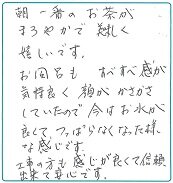 朝一番のお茶が
まろやかで美しく
嬉しいです。
お風呂も すべすべ感が
気持良く 顔がかさかさ
していたので今はお水が
良くて、つっぱらなくなった様
な感じです。
工事の方も感じが良くて信頼
出来て安心です。